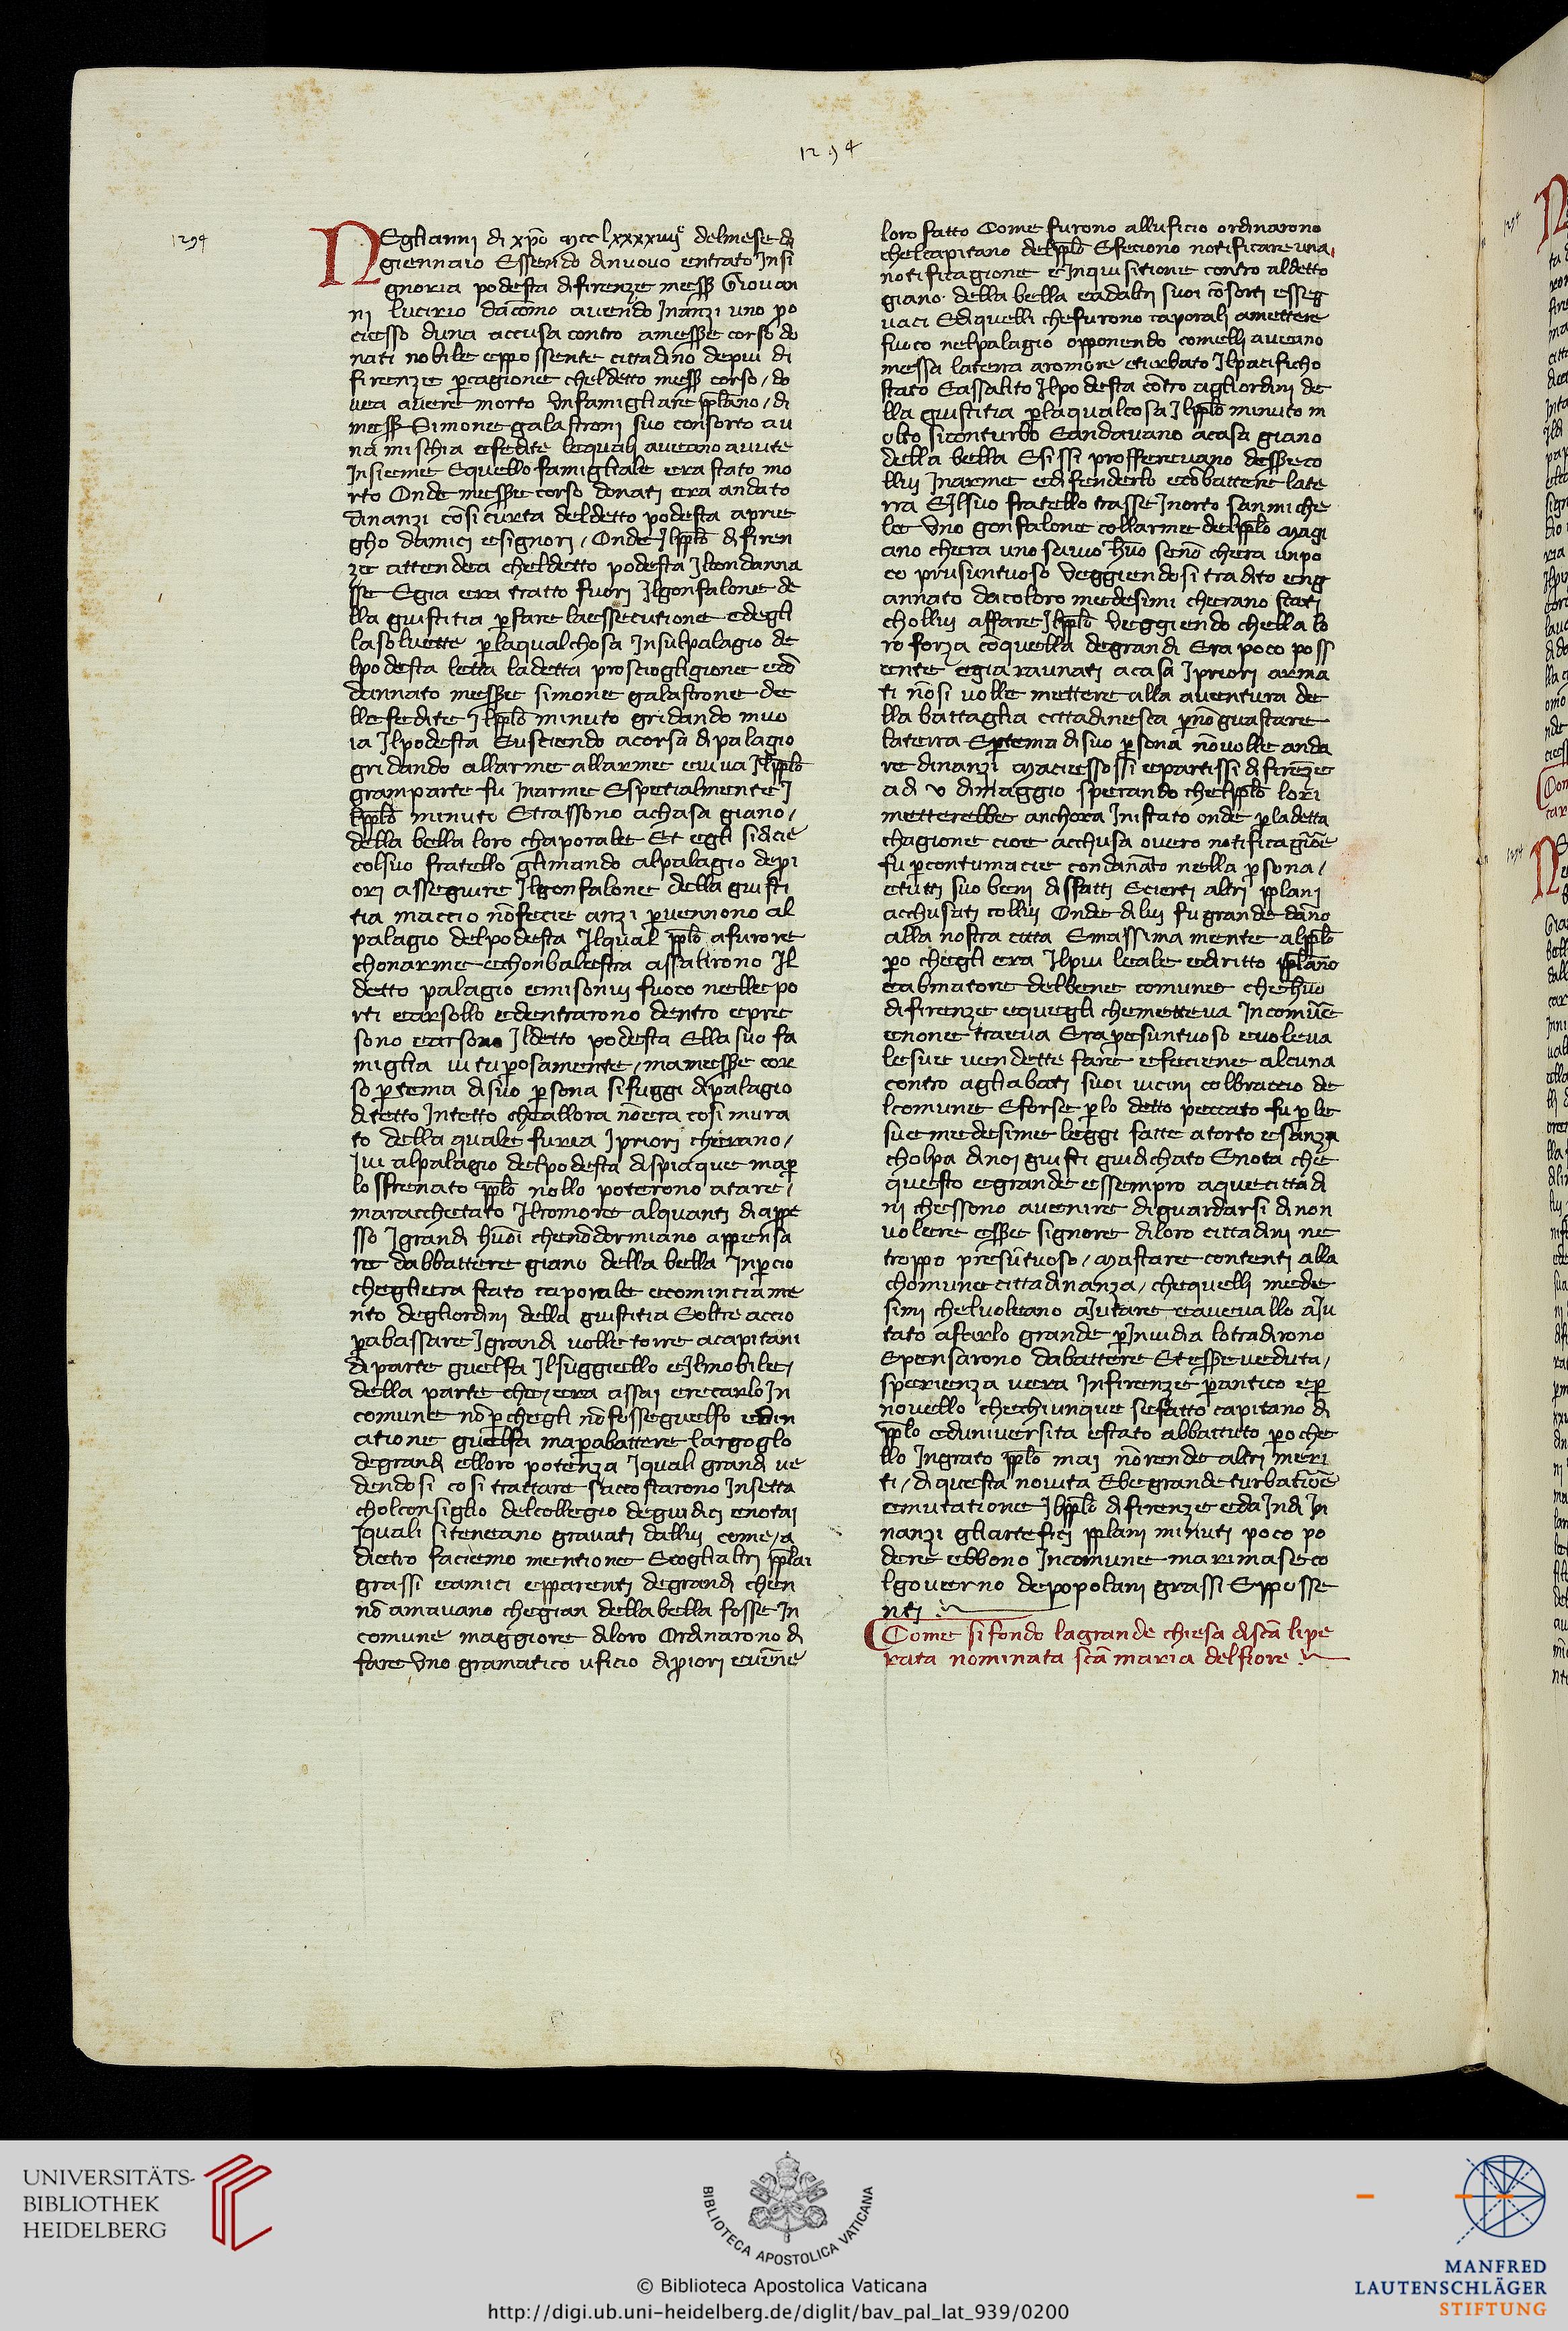 1294
1294
NEgli anni di xp̄o mcclxxxxiiij° del mese di
giennaio Essendo dinuovo entrato Insi
gnoria podesta difirenze mess̄ Giovan
ni lucirio dacomo avendo Inanzi uno p̱o
ciesso duna accusa contro amess̱e corso do
nati nobile eppossente cittadino depiu di
firenze p̱cagione cheldetto mess̄ corso / do
vea avere morto Vnfamigliare ppl̄ano / di
mess̄ Simone galastroni suo consorto au
na mischia efedite lequali aveano avute
Insieme Equello famigliale era stato mo
rto Onde mess̱e corso donati era andato
dinanzi cōsicurta deldetto podesta aprie
gho damici esignori / Onde Ilppl̄o difiren
ze attendea cheldetto podesta Ilcondanna
sse Egia era tratto fuori Ilgonfalone de
lla giustitia p̱fare laessecutione edegli
lasoluette p̱laqualchosa Insulpalagio de
lpodesta letta ladetta prosciogligione ecō
dannato mess̱e simone galastrone de
llefedite Ilppl̄o minuto gridando muo
ia Ilpodesta Eusciendo acorsa dipalagio
gridando allarme allarme eviva Ilppl̄o
gramparte fu Inarme Espetialmente I
lppl̄o minuto Etrassono achasa giano /
della bella loro chaporale Et egli sidicie
colsuo fratello glimando alpalagio depi
ori assegiure Ilgonfalone della giusti
tia maccio nōfecie anzi p̱vennono al
palagio delpodesta Ilqual ppl̄o afurore
chonarme echonbalestra assalirono Il
detto palagio emisonvi fuoco nellepo
rti earsollo edentrarono dentro epre
sono earsono Ildetto podesta Ella suo fa
miglia vitup̱osamente / mamess̱e cor
so p̱tema disuo p̱sona sifuggi dipalagio
ditetto Intetto cheallora nōera cosi mura
to della quale furia Ipriori cherano /
Ivi alpalagio delpodesta dispiaque map̱
losfrenato ppl̄o nollo poterono atare /
maracchetato Ilromore alquanti diappe
sso Igrandi huōi chenōdormiano appensa
re dabbattere giano della bella Inp̱cio
cheglera stato caporale ecominciame
nto degliordini della giustitia Eoltre accio
p̱abassare Igrandi volle torre acapitani
diparte guelfa Ilsuggiello eIlmobile /
della parte che / era assai erecarlo In
comune nōp̱chegli nōfosseguelfo edin
atione guelfa map̱abattere largoglo
degrandi elloro potenza Iquali grandi ve
dendosi cosi trattare saccostarono Insetta
cholconsiglio delcollegio degiudici enotai
Iquali siteneano gravati dallui come / a
dietro faciemo mentione Ecoglialtri ppl̄ai
grassi eamici epparenti degrandi chen
nō amavano chegian dellabella fosse In
comune maggiore diloro Ordinarono di
fare Vno gramatico uficio dip̱iori evēne
loro fatto Come furono alluficio ordinarono
chelcapitano delppl̄o Efeciono notificareuna
notificagione eInquisitione contro aldetto
giano della bella eadaltri suoi cōsorti esseg
uaci Ediquelli chefurono caporali amettere
fuoco nelpalagio opponendo comelli aveano
messa laterra aromore eturbato Ilpacificho
stato Eassalito Ilpodesta cōtro agliordini de
lla giustitia p̱laqualcosa Ilppl̄o minuto m
olto siconturbo Eandavano acasa giano
della bella Esissi profferevano dess̱eco
llui Inarme edifenderlo ecōbattere late
rra EIlsuo fratello trasse Inorto sanmiche
le Vno gonfalone collarme delppl̄o Magi
ano chera uno savio huō senō chera unpo
co prusuntuoso Veggiendosi tradito eng
annato dacoloro medesimi cherano stati
chollui affare Ilppl̄o Veggiendo chella lo
ro forza cōquella degrandi Era poco poss
ente egia raunati acasa Ipriori arma
ti nōsi volle mettere alla aventura de
lla battaglia cittadinesca p̱nōguastare
laterra Ep̱tema disuo p̱sona nōvolle anda
re dinanzi Maciessossi epartissi difirenze
adi v dimaggio sperando chelppl̄o lori
metterebbe anchora Inistato onde p̱ladetta
chagione cioe acchusa overo notificagiōe
fu p̱contumacie condānato nella p̱sona /
etutti suo beni disfatti Ecierti altri pplani
acchusati collui Onde dilui fu grande dāno
alla nostra citta Emassimamente alppl̄o
p̱o chegli era Ilpiu leale ediritto ppl̄ano
eabmatore delbene comune chehuō
difirenze equegli chemetteva Incomūe
enone traeva Era pesuntuoso evoleva
lesue vendette fare efeciene alcuna
contro agliabati suoi vicini colbraccio de
lcomune Eforse p̱lo detto peccato fu p̱ le
sue medesime leggi fatte atorto esanza
cholpa dinoj giusti giudichato Enota che
questo egrande essempro aquecittadi
ni chessono avenire diguardarsi dinon
volere ess̱e signore diloro cittadini ne
troppo presūtuoso / Mastare contenti alla
chomunecittadinanza / chequelli mede
simi chelvoleano aIutare eavevallo aIu
tato afarlo grande p̱Inuidia lotradirono
Epensarono dabattere Etess̱eveduta /
sperienza vera Infirenze p̱antico ep̱
novello chechiunque sefatto capitano di
ppl̄o eduniversita estato abbattuto p̱oche
llo Ingrato ppl̄o mai nōrende altri meri
ti / diquesta novita Ebe grandeturbatiōe
emutatione Ilppl̄o difirenze eda Indi In
nanzi gliartefici pplani minuti poco po
dere ebbono Incomune marimaseco
lgoverno depopolani grassi Epposse
nti
Come sifondo lagrande chiesa discā lipe
rata nominata scā maria delfiore
UNIVERSITÄTS-
BIBLIOTHEK
HEIDELBERG
BIBLIOTECA APOSTOLICA VATICANA
© Biblioteca Apostolica Vaticana
http://digi.ub.uni-heidelberg.de/diglit/bav_pal_lat_939/0200
MANFRED
LAUTENSCHLÄGER
STIFTUNG